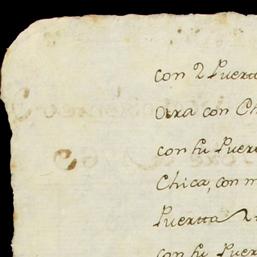 con 2 Puerta
Otra con Ch
con su Puer
Chica, con m
Puertta
con su Puer